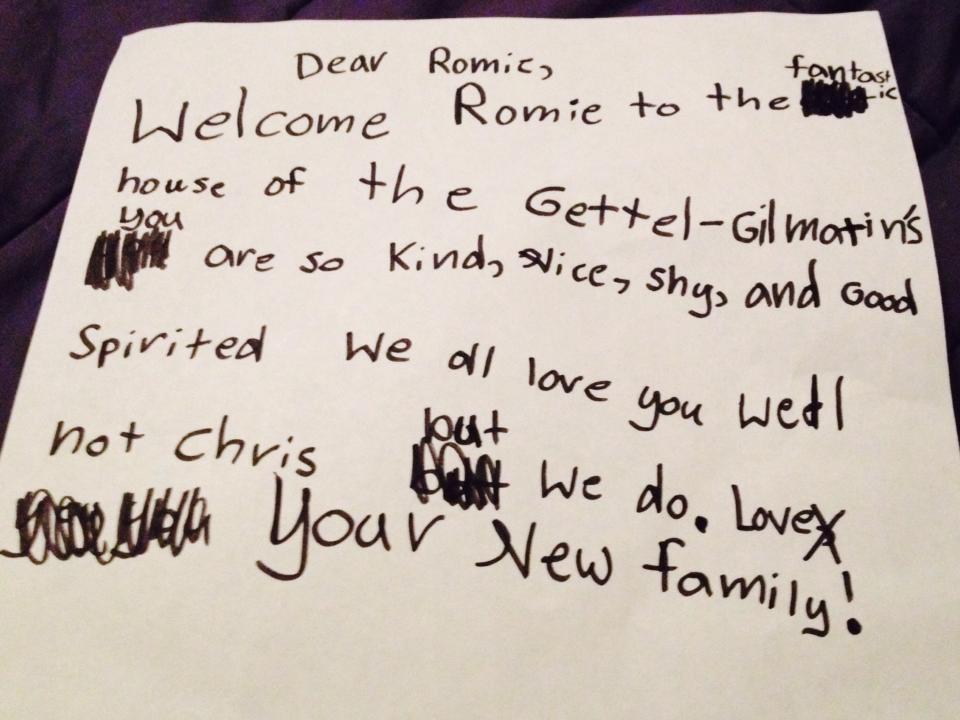 Dear Romie,
Welcome Romie to the fantastic
house of the Gettel-Gilmatin's
you are so kind, Nice, shy, and Good
Spirited We all love you well
not Chris but We do. Love
Your New family!